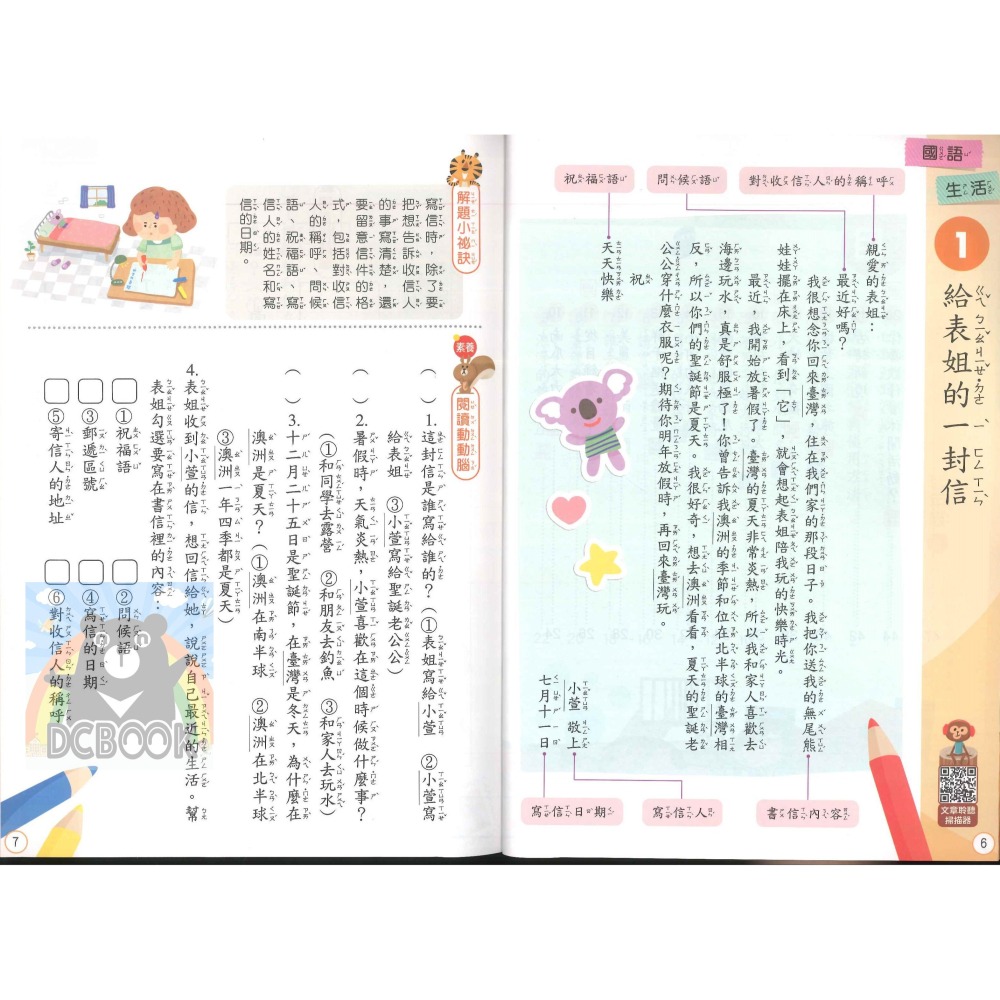 國語
生活
1
給表姐的一封信
對收信人的稱呼
問候語
祝福語
親愛的表姐：
最近好嗎？
我很想念你回來臺灣，住在我們家的那段日子。我把你送我的無尾熊
娃娃擺在床上，看到「它」，就會想起表姐陪我玩的快樂時光。
最近，我開始放暑假了。臺灣的夏天非常炎熱，所以我和家人喜歡去
海邊玩水，真是舒服極了！你曾告訴我澳洲的季節和位在北半球的臺灣相
反，所以你們的聖誕節是夏天。我很好奇，想去澳洲看看，夏天的聖誕老
公公穿什麼衣服呢？期待你明年放假時，再回來臺灣玩。
祝
天天快樂
小萱 敬上
七月十一日
書信內容
寫信人
寫信日期
文章聆聽
掃描器
6
解題小祕訣
寫信時，除了要
把想告訴收信人
的事寫清楚，還
要留意信件的格
式，包括對收信
人的稱呼、問候
語、祝福語、寫
信人的姓名和寫
信的日期。
素養
閱讀動動腦
（ ）1.這封信是誰寫給誰的？（①表姐寫給小萱 ②小萱寫
給表姐 ③小萱寫給聖誕老公公）
（ ）2.暑假時，天氣炎熱，小萱喜歡在這個時候做什麼事？
（①和同學去露營 ②和朋友去釣魚 ③和家人去玩水）
（ ）3.十二月二十五日是聖誕節，在臺灣是冬天，為什麼在
澳洲是夏天？（①澳洲在南半球 ②澳洲在北半球
③澳洲一年四季都是夏天）
4.表姐收到小萱的信，想回信給她，說說自己最近的生活。幫
表姐勾選要寫在書信裡的內容：
□①祝福語 □②問候語
□③郵遞區號 □④寫信的日期
□⑤寄信人的地址 □⑥對收信人的稱呼
7
DCBOOK